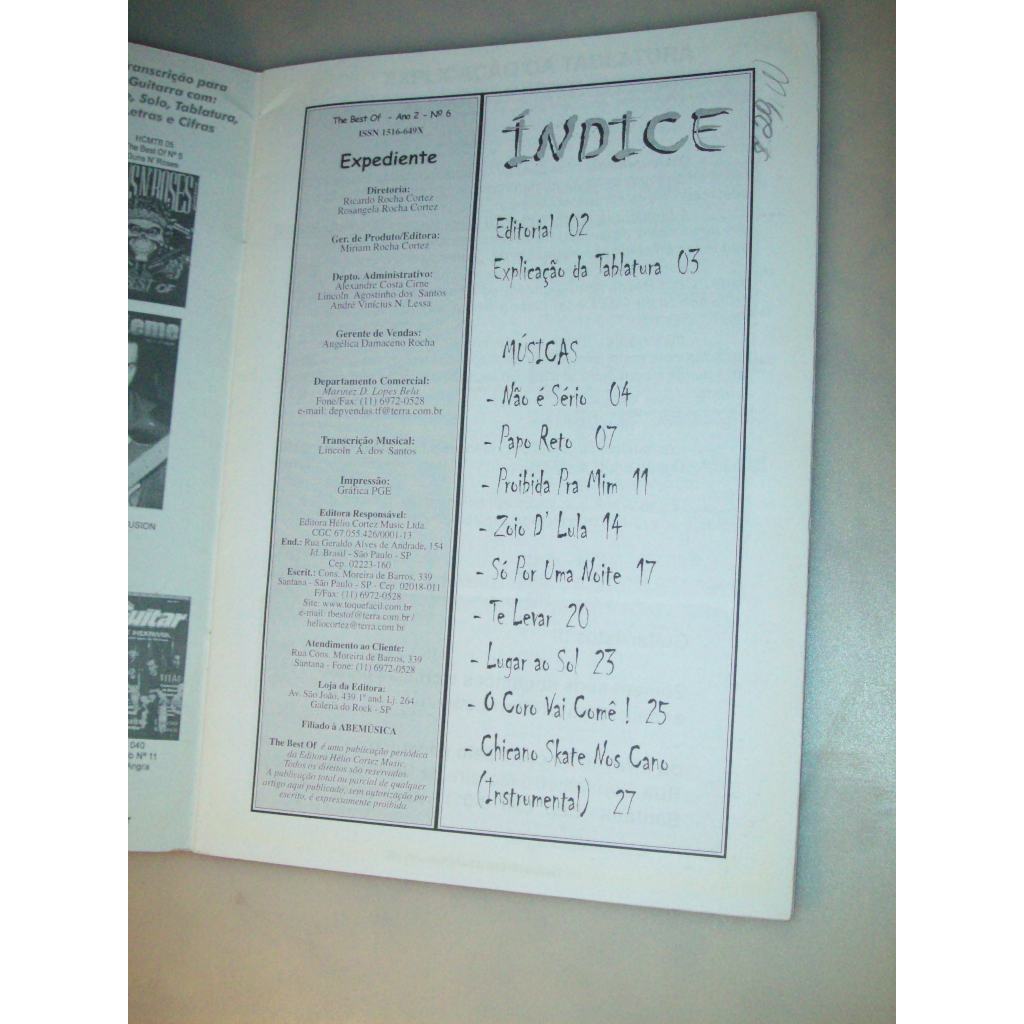 ranscrição para
Guitarra com:
, Solo, Tablatura,
Letras e Cifras
HCMTB 05
The Best Of Nº 5
Guns N' Roses
S N' ROSES
BEST OF
eme
USION
Guitar
TITÃS
040
o Nº 11
Angra
The Best Of - Ano 2 - Nº 6
ISSN 1516-649X
Expediente
Diretoria:
Ricardo Rocha Cortez
Rosangela Rocha Cortez
Ger. de Produto/Editora:
Miriam Rocha Cortez
Depto. Administrativo:
Alexandre Costa Cirne
Lincoln Agostinho dos Santos
André Vinícius N. Lessa
Gerente de Vendas:
Angélica Damaceno Rocha
Departamento Comercial:
Marinez D. Lopes Bela
Fone/Fax: (11) 6972-0528
e-mail: depvendas.tf@terra.com.br
Transcrição Musical:
Lincoln A. dos Santos
Impressão:
Gráfica PGE
Editora Responsável:
Editora Hélio Cortez Music Ltda.
CGC 67.055.426/0001-13
End.: Rua Geraldo Alves de Andrade, 154
Jd. Brasil - São Paulo - SP
Cep. 02223-160
Escrit.: Cons. Moreira de Barros, 339
Santana - São Paulo - SP - Cep. 02018-011
F/Fax: (11) 6972-0528
Site: www.toquefacil.com.br
e-mail: tbestof@terra.com.br /
heliocortez@terra.com.br
Atendimento ao Cliente:
Rua Cons. Moreira de Barros, 339
Santana - Fone: (11) 6972-0528
Loja da Editora:
Av. São João, 439 1º and. Lj. 264
Galeria do Rock - SP
Filiado à ABEMÚSICA
The Best Of é uma publicação periódica
da Editora Hélio Cortez Music.
Todos os direitos são reservados.
A publicação total ou parcial de qualquer
artigo aqui publicado, sem autorização por
escrito, é expressamente proibida.
ÍNDICE
Editorial 02
Explicação da Tablatura 03
MÚSICAS
- Não é Sério 04
- Papo Reto 07
- Proibida Pra Mim 11
- Zoio D' Lula 14
- Só Por Uma Noite 17
- Te Levar 20
- Lugar ao Sol 23
- O Coro Vai Comê ! 25
- Chicano Skate Nos Cano
(Instrumental) 27